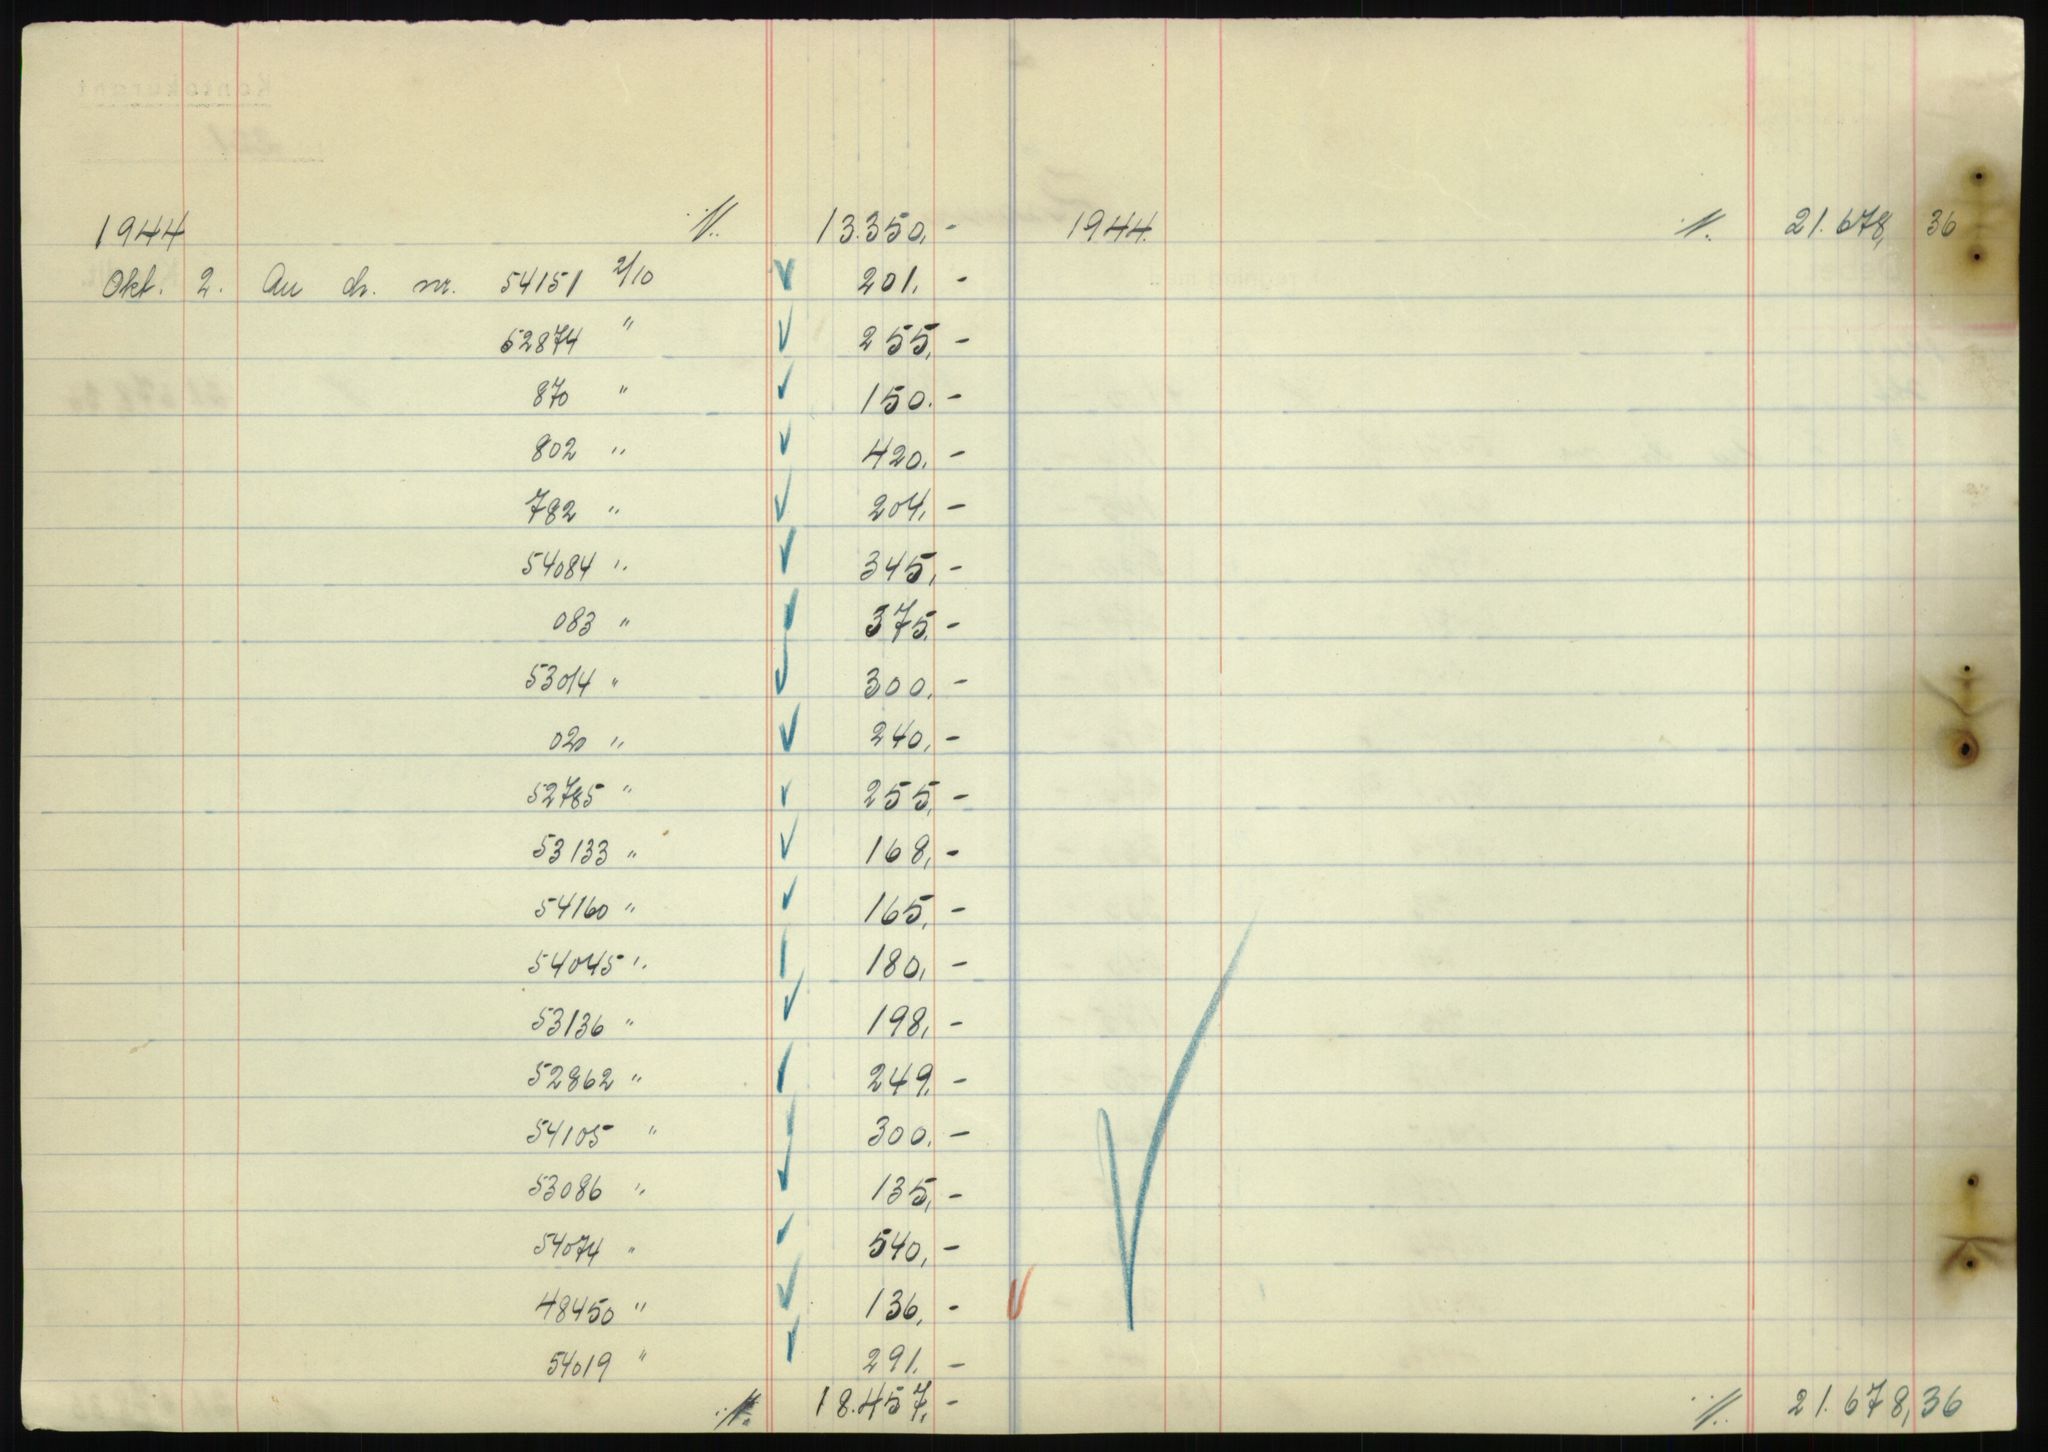 1944 ./. 13.350,- 1944. ./. 21.678,36
Okt. 2. An ch. nr. 54151 2/10 201,-
52874 " 255,-
870 " 150,-
802 " 420,-
782 " 204,-
54084 " 345,-
083 " 375,-
53014 " 300,-
020 " 240,-
52785 " 255,-
53133 " 168,-
54160 " 165,-
54045 " 180,-
53136 " 198,-
52862 " 249,-
54105 " 300,-
53086 " 135,-
54074 " 540,-
48450 " 136,-
54019 " 291,-
./. 18.457,- ./. 21.678,36